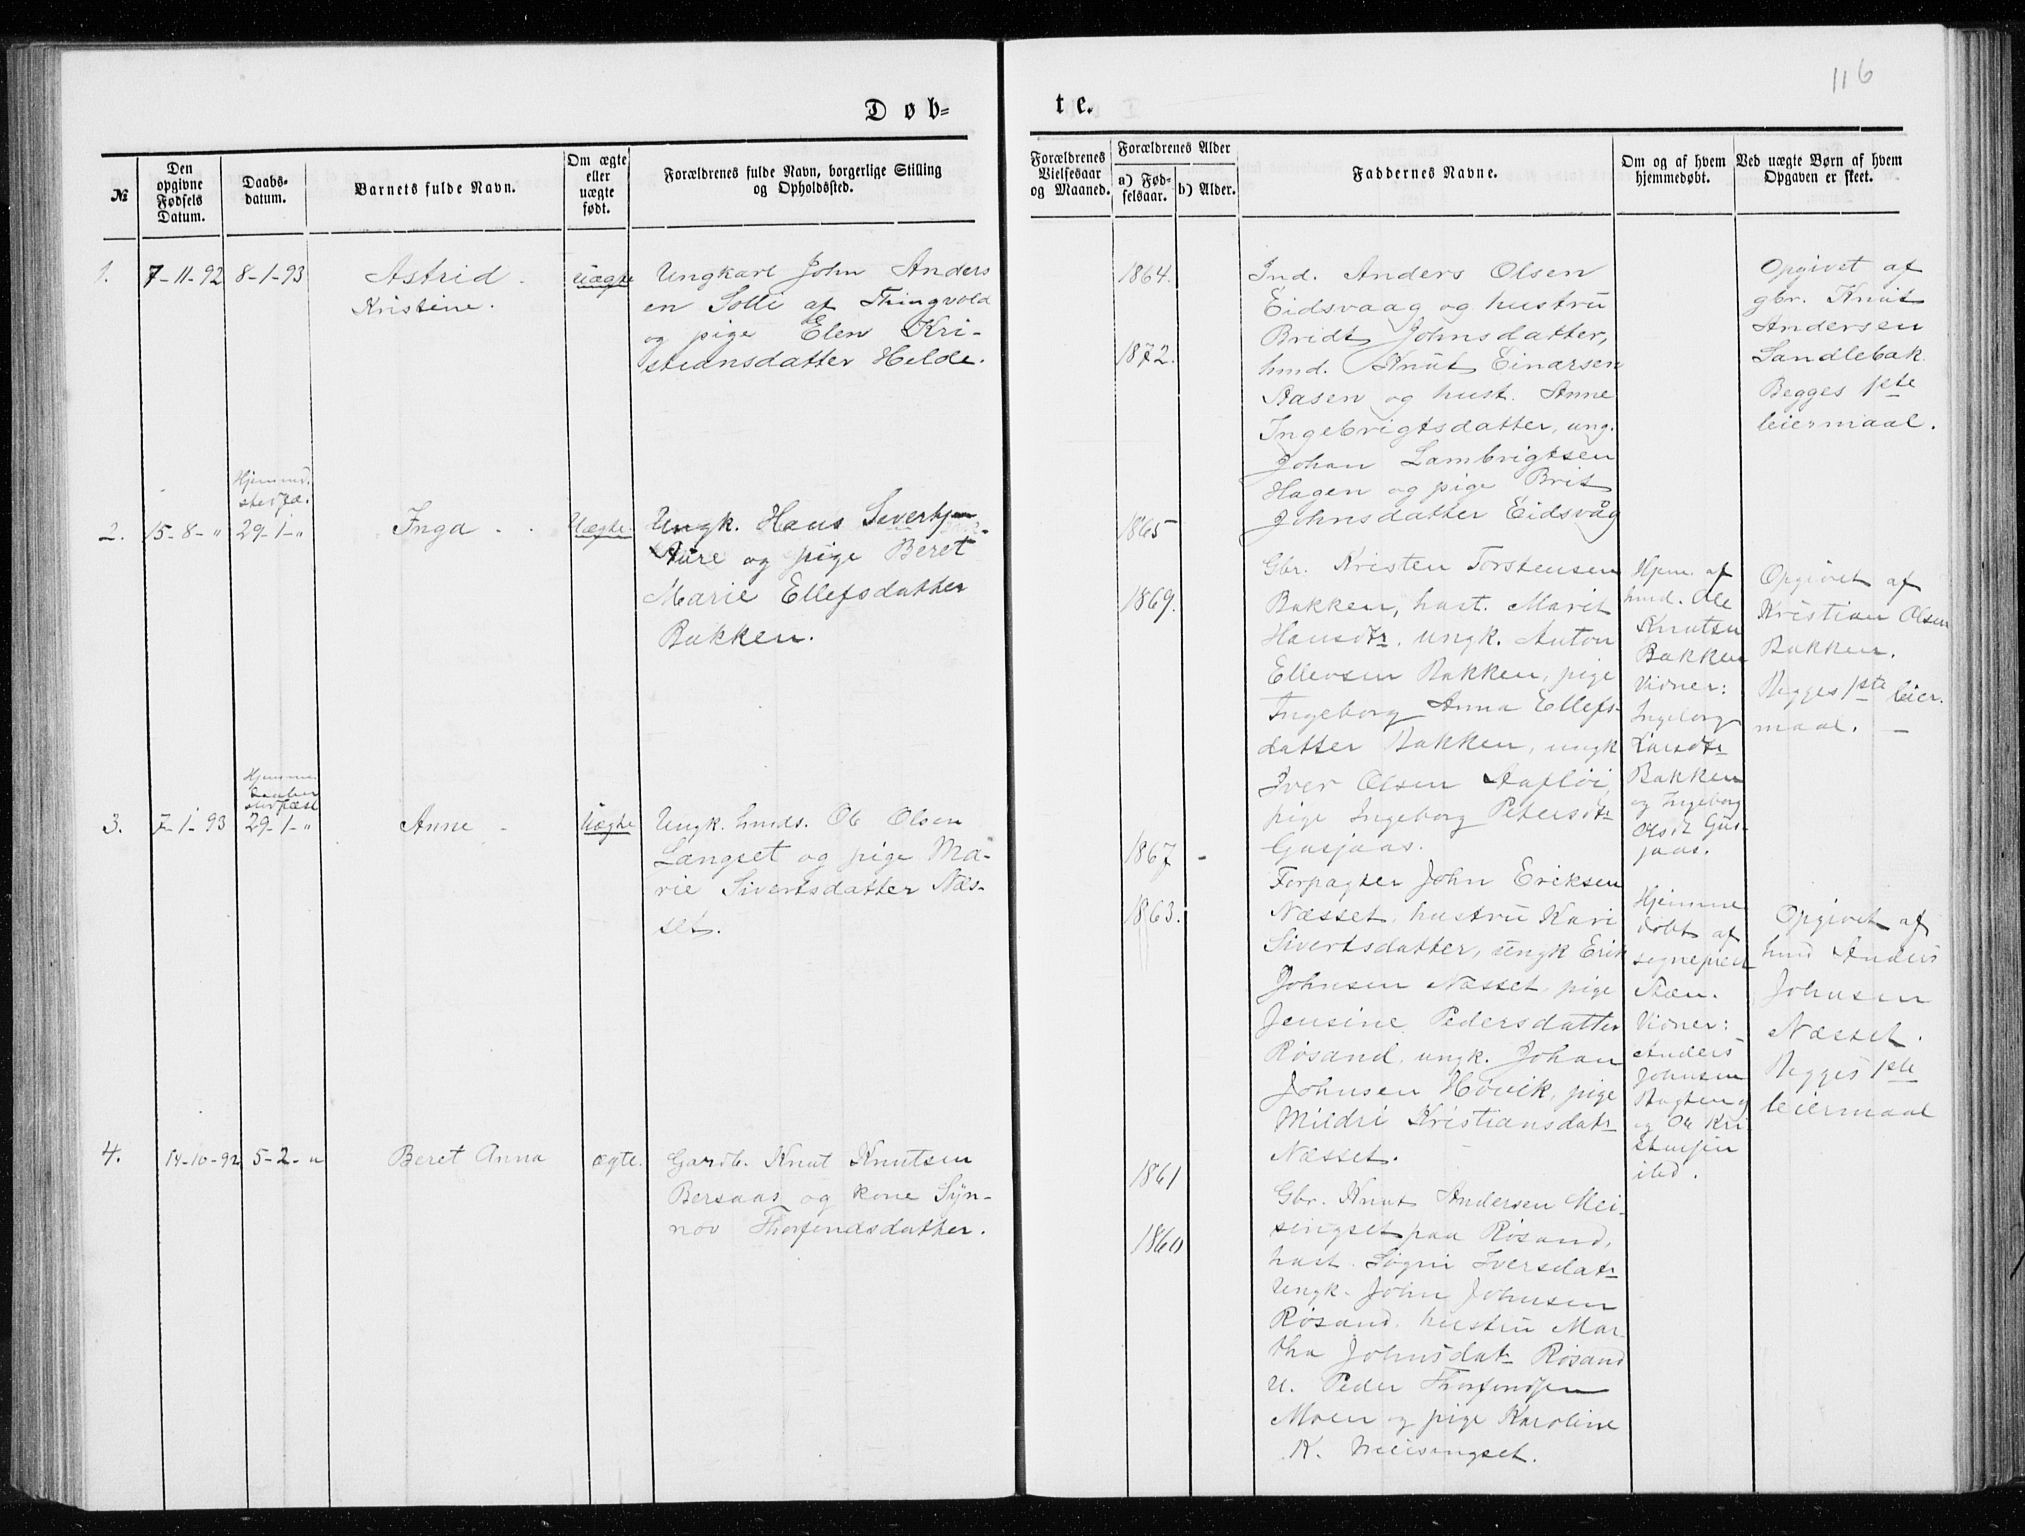 116
Døb-
te.
№
Den opgivne Fødsels Datum.
Daabs-datum.
Barnets fulde Navn.
Om ægte eller uægte født.
Forældrenes fulde Navn, borgerlige Stilling og Opholdssted.
Forældrenes Vielsesaar og Maaned.
Forældrenes Alder
a) Fød-selsaar.
b) Alder.
Faddernes Navne.
Om og af hvem hjemmedøbt.
Ved uægte Børn af hvem Opgaven er skeet.
1.
7-11-92
8-1-93
Astrid
Kristine.
Uægte
Ungkarl John Anders
en Solli af Thingvold
og pige Elen Kri-
stiansdatter Helde.
1864.
1872.
Ind. Anders Olsen
Eidsvaag og hustru
Bridt Johnsdatter,
hmd. Knut Einarsen
Aasen og hust. Anne
Ingebrigtsdatter, ung.
Johan Lambrigtsen
Hagen og pige Brit
Johnsdatter Eidsvåg
Opgivet af
gbr. Knut
Andersen
Sandlebak.
Begges 1ste
leiermaal.
2.
15-8-"
29-1-"
Inga
Uægte.
Ungk. Hans
Aure og pige Beret
Marie Ellefsdatter
Bakken.
1865
1869.
Gbr. Kristen Torstensen
Bakken, hust. Marit
Hansdtr. ungk. Anton
Ellevsen Bakken, pige
Ingeborg Anna Ellefs-
datter Bakken, ungk
Iver Olsen
pige Ingeborg Petersdtr
Gusjaas.
Hjem. af
hmd. Ole
Knutsen
Bakken
Vidner:
Ingeborg
Larsdtr
Bakken
og Ingeborg
Olsdt Gus-
jaas.
Opgivet af
Kristian Olsen
Bakken.
Begges 1ste leier-
maal.
3.
7-1-93
29-1-"
Anne
Uægte
Ungk. hmds. Ole Olsen
Længset og pige Ma-
rie Sivertsdatter Næs-
set.
1867
1863.
Forpagter John Eriksen
Næsset, hustru Kari
Sivertsdatter, ungk Erik
Johnsen Næsset, pige
Jensine Pedersdatter
Røsand, ungk. Johan
Johnsen Høvik, pige
Mildri Kristiansdatr
Næsset.
Hjemme
døbt af
sognepræst
Vidner:
Anders
Johnsen
og Ole Kri
stensen
ibd.
Opgivet af
hmd Anders
Johnsen
Næsset.
Begges 1ste
leiermaal
4.
14-10-92
5-2-"
Beret Anna
ægte.
Gardb. Knut Knutsen
Bersaas og kone Syn-
nøv Thorfindsdatter.
1861
1860
Gbr. Knut Andersen Mei-
singset paa Røsand,
hust. Søgni Iversdatr
Ungk. John Johnsen
Røsand, hustru Mar-
tha Johnsdatr Røsand
U. Peder Thorfindsen
Moen og pige Karoline
K. Meisingset.